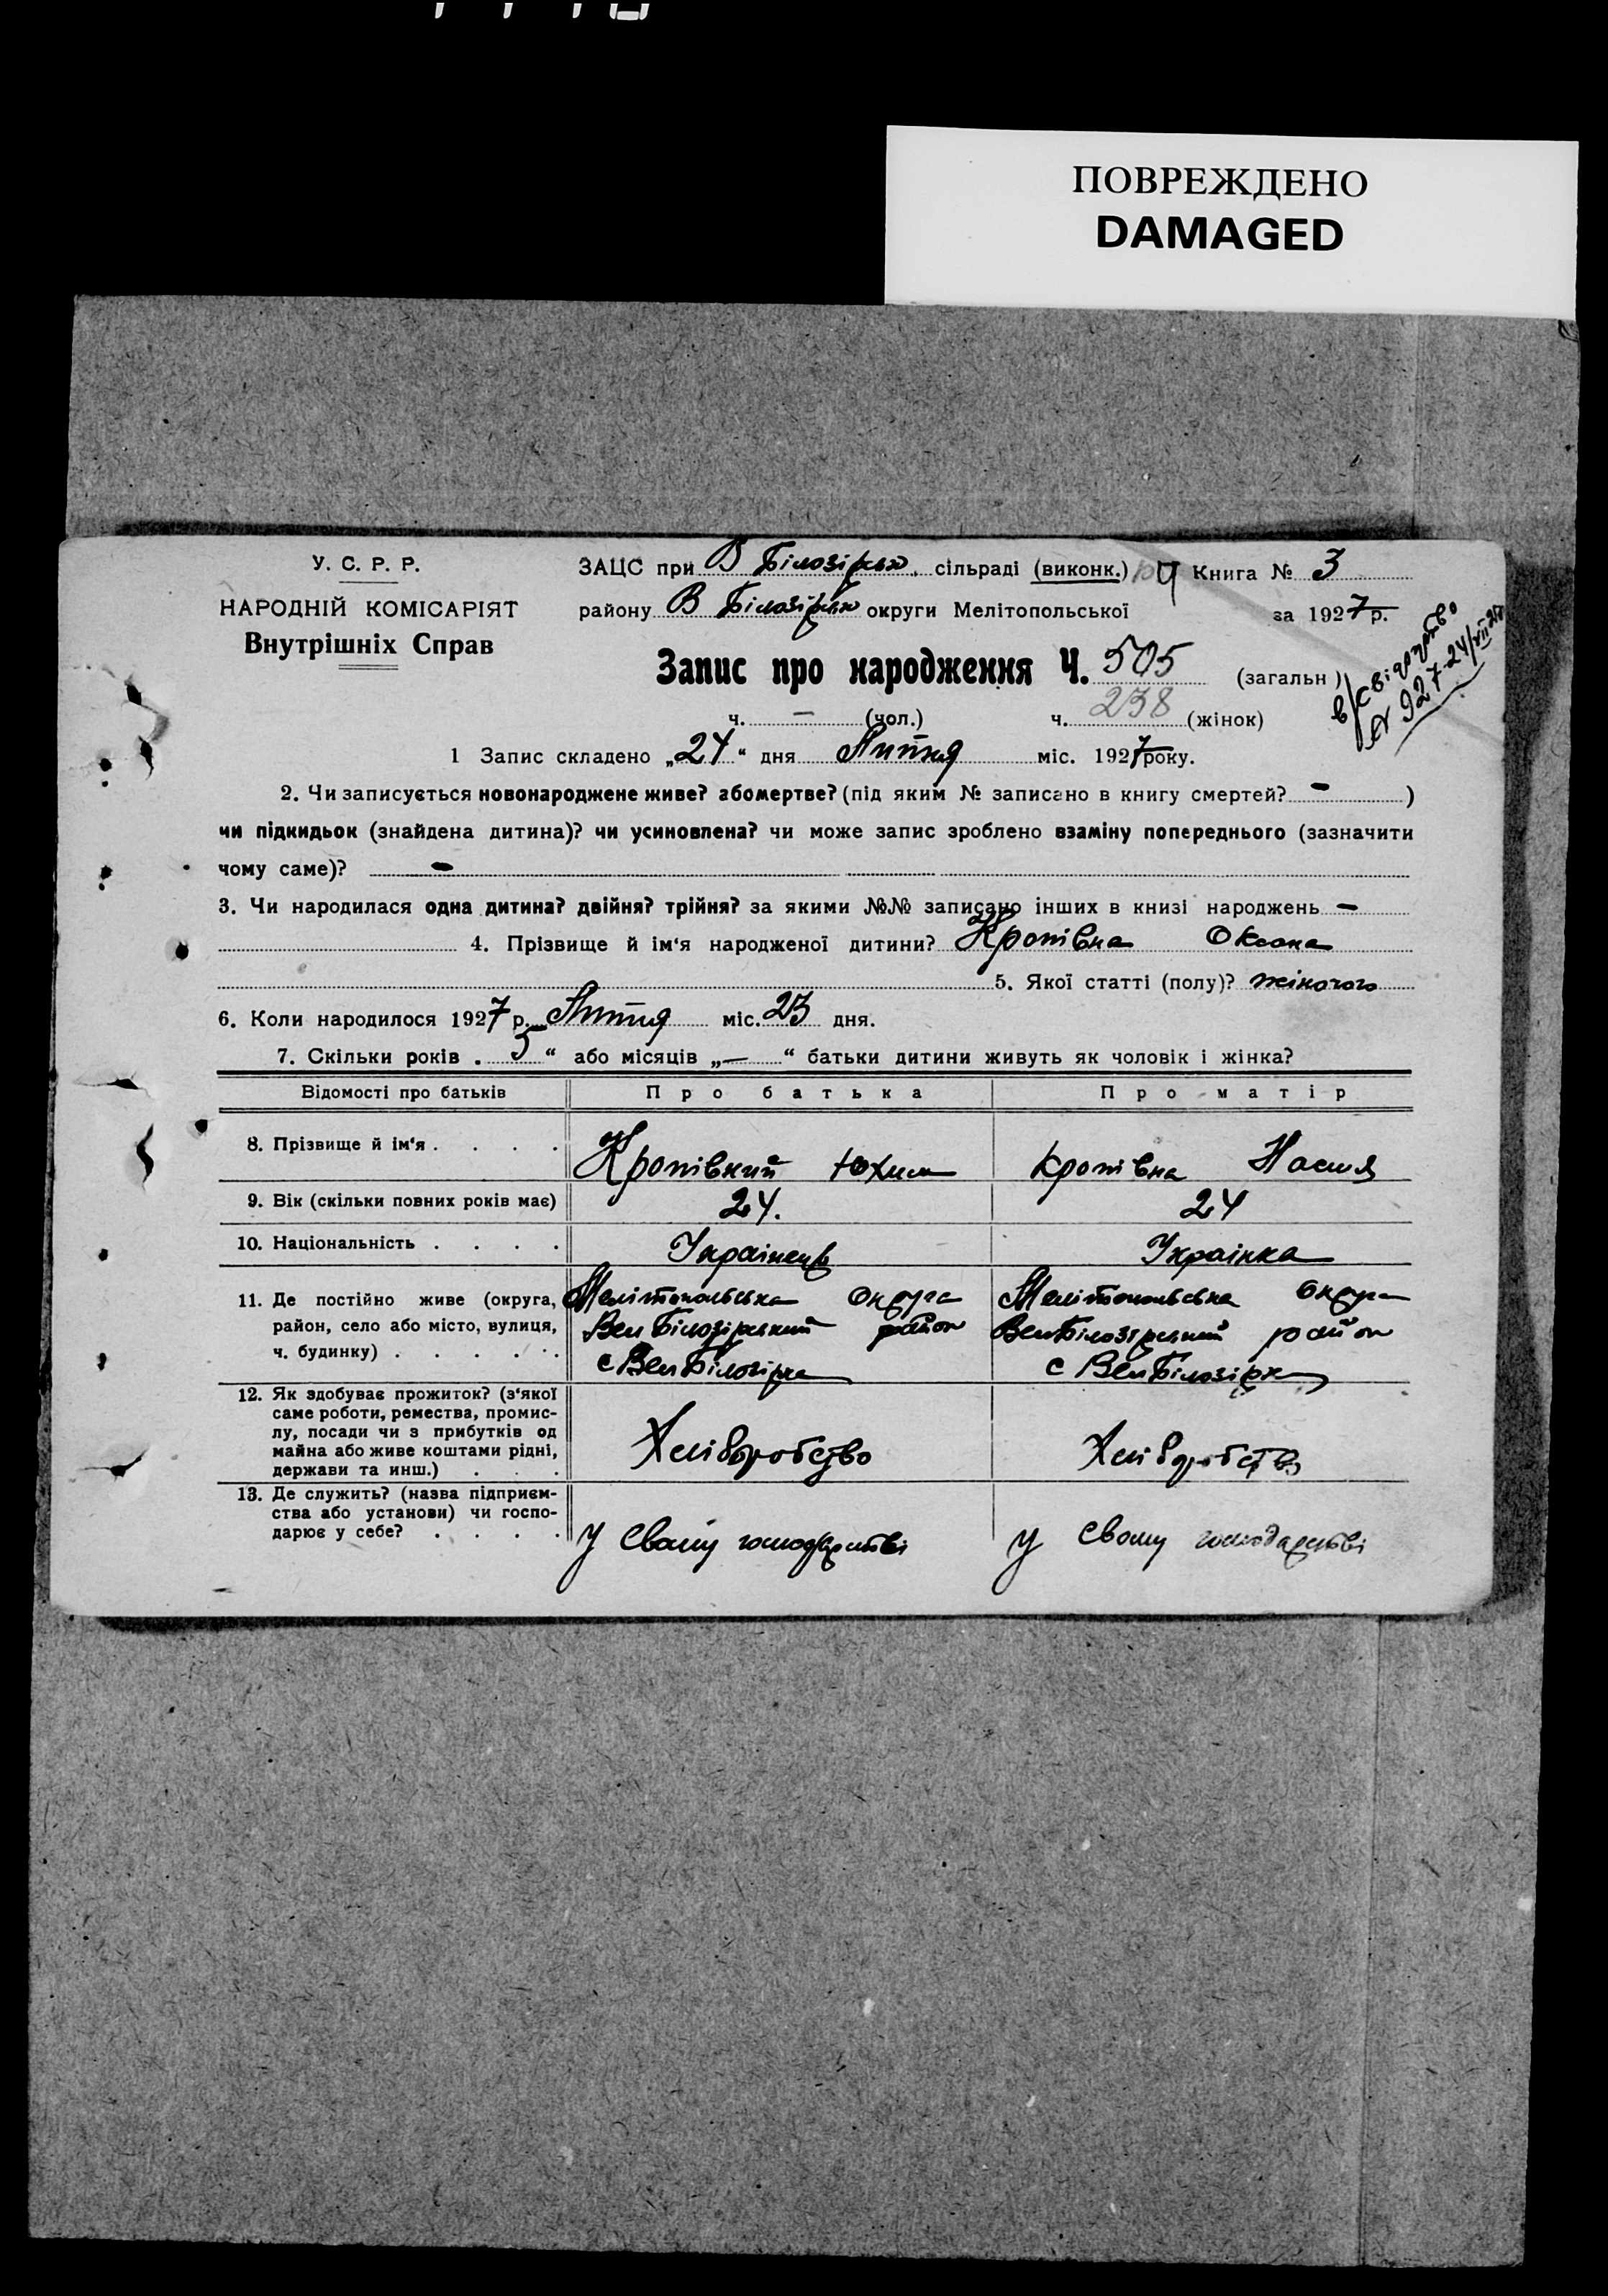 ПОВРЕЖДЕНО
DAMAGED
У. С. Р. Р.
НАРОДНІЙ КОМІСАРІЯТ
Внутрішніх Справ
ЗАЦС при В Білозірськ. сільраді (виконк.) Книга № 3
району В Білозірськ округи Мелітопольської за 1927 р.
Запис про народження Ч. 505 (загальн)
ч. — (чол.) ч. 238 (жінок)
в/свідоцтво
№ 927-24/VII
1 Запис складено „24“ дня Липня міс. 1927 року.
2. Чи записується новонароджене живе? або мертве? (під яким № записано в книгу смертей? - )
чи підкидьок (знайдена дитина)? чи усиновлена? чи може запис зроблено взаміну попереднього (зазначити
чому саме)? -
3. Чи народилася одна дитина? двійня? трійня? за якими №№ записано інших в книзі народжень -
4. Прізвище й ім‘я народженої дитини? Кропівна Оксана
5. Якої статті (полу)? жіночого
6. Коли народилося 1927 р. Липня міс. 23 дня.
7. Скільки років „ 5 “ або місяців „ — “ батьки дитини живуть як чоловік і жінка?
Відомості про батьків Про батька Про матір
8. Прізвище й ім‘я . . . . Кропівний Юхим Кропівна Настя
9. Вік (скільки повних років має) 24. 24
10. Національність . . . . Українець Українка
11. Де постійно живе (округа, Мелітопольська Округа Мелітопольська Округа
район, село або місто, вулиця, Вел Білозірський район Вел Білозірський район
ч. будинку) . . . . . . с Вел Білозірка с Вел Білозірка
12. Як здобуває прожиток? (з‘якої
саме роботи, ремества, промис-
лу, посади чи з прибутків од
майна або живе коштами рідні, Хліборобство Хліборобство
держави та инш.) . . .
13. Де служить? (назва підприєм-
ства або установи) чи госпо-
дарює у себе? . . . . У свому господарстві У свому господарстві